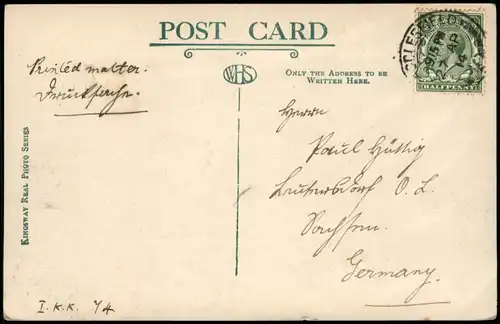 POST CARD
Printed matter.
Drucksache.
WHS
ONLY THE ADDRESS TO BE
WRITTEN HERE.
HALFPENNY
Herrn
Paul Hüttig
Leutersdorf O. L.
Sachsen.
Germany.
KINGSWAY REAL PHOTO SERIES
I. K. K. 7/4